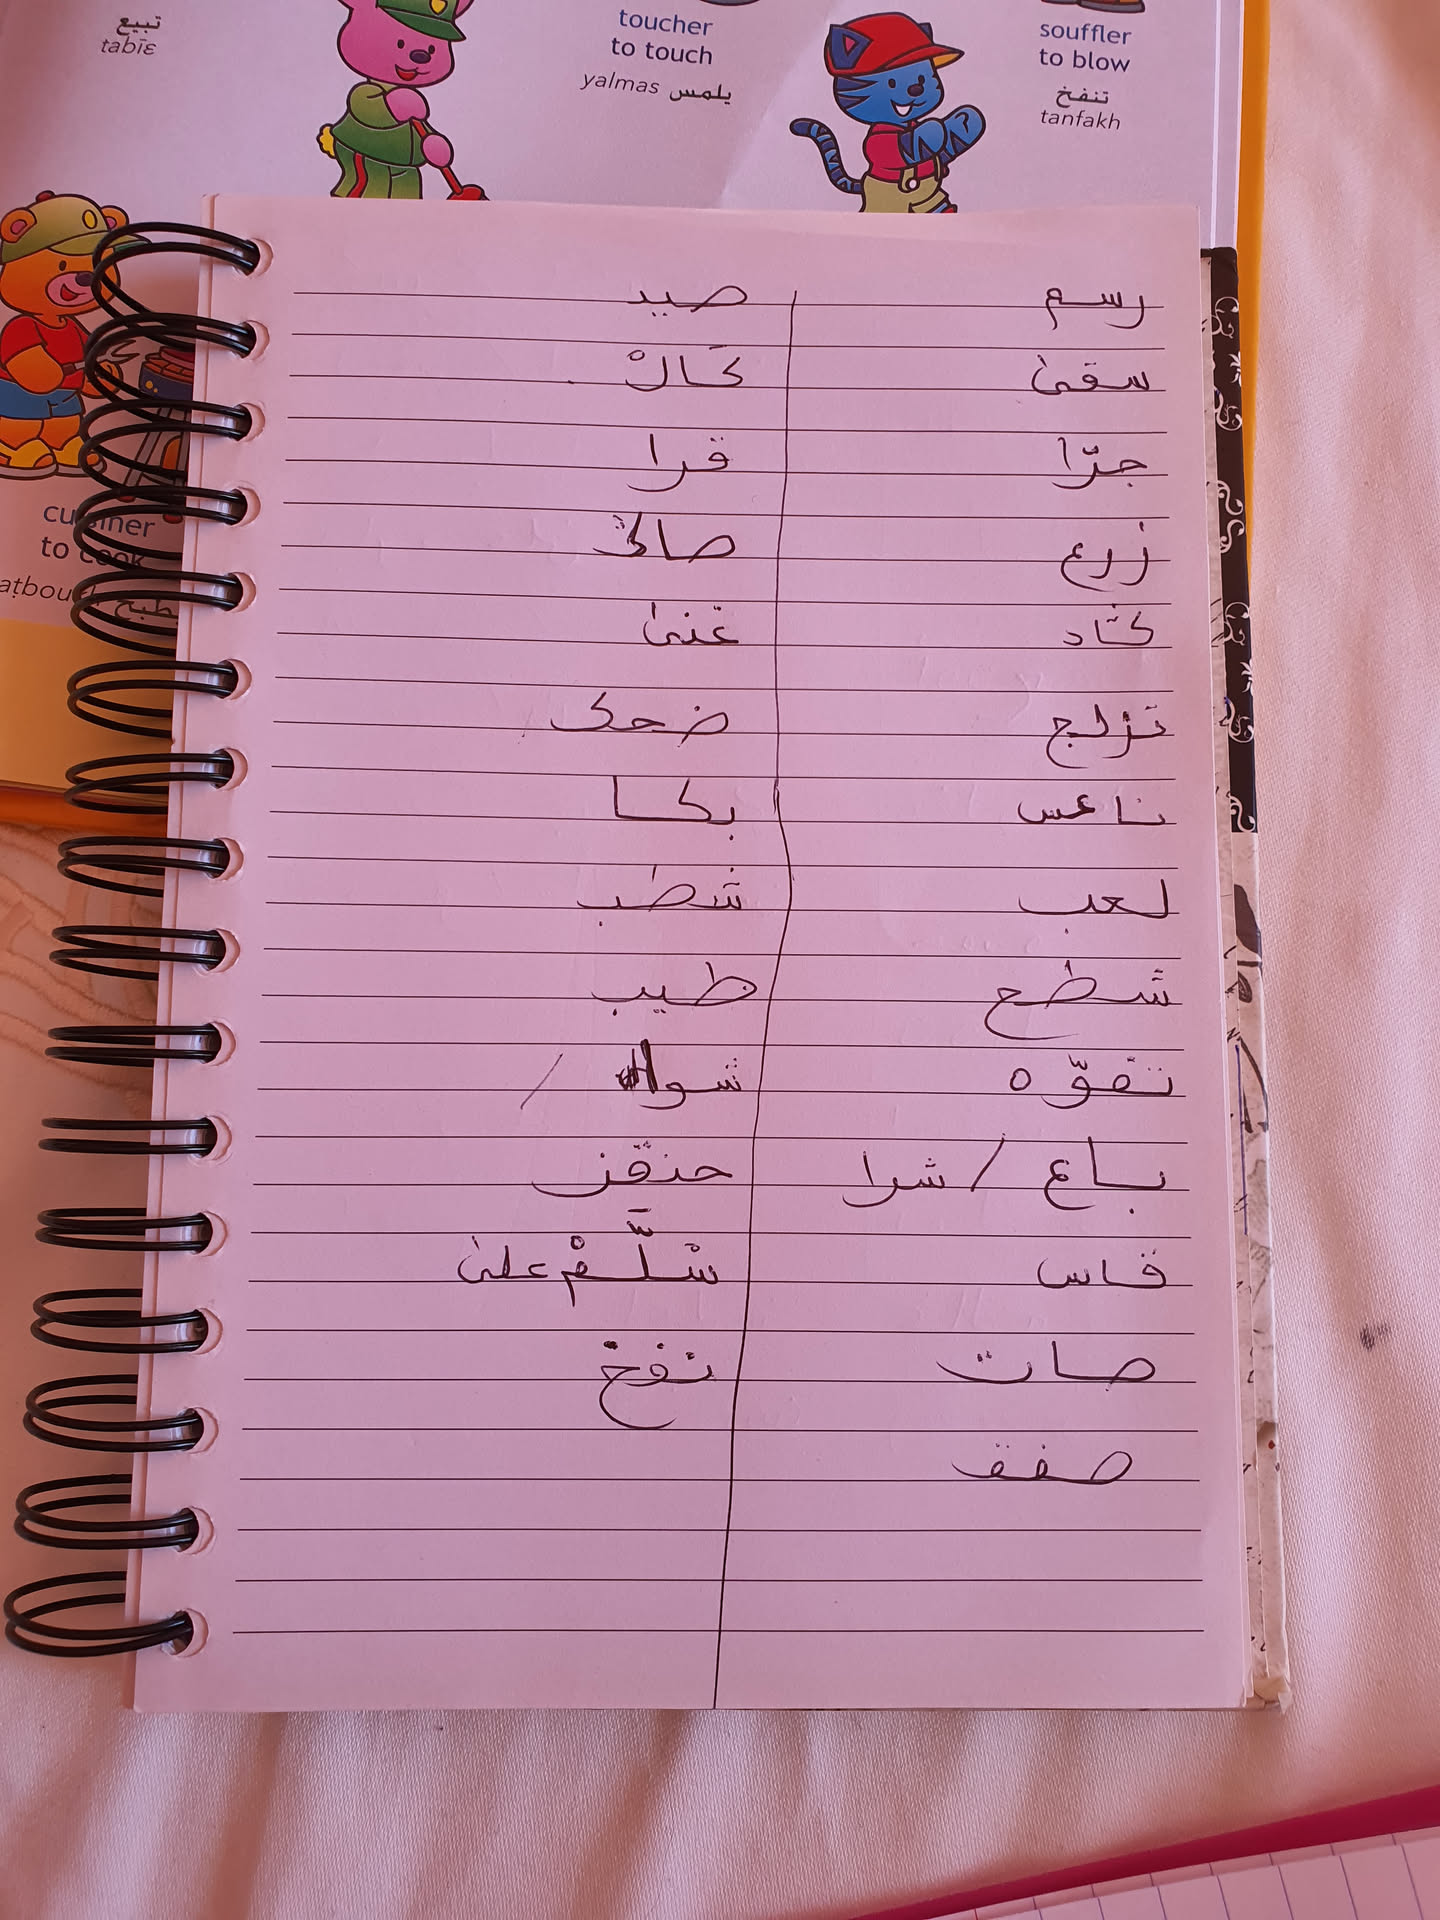 تبيع
tabīɛ
toucher
to touch
yalmas يلمس
souffler
to blow
تنفخ
tanfakh
cuisiner
to cook
يطبخ
رسم
سقى
جرّا
زرع
تزلج
ناعس
لعب
شطح
تفوّه
باع / شرا
قاس
صات
صفق
صيد
قرا
غنى
ضحك
بكا
شطب
طيب
شوا
حنقز
سْلّمْ على
نفخ